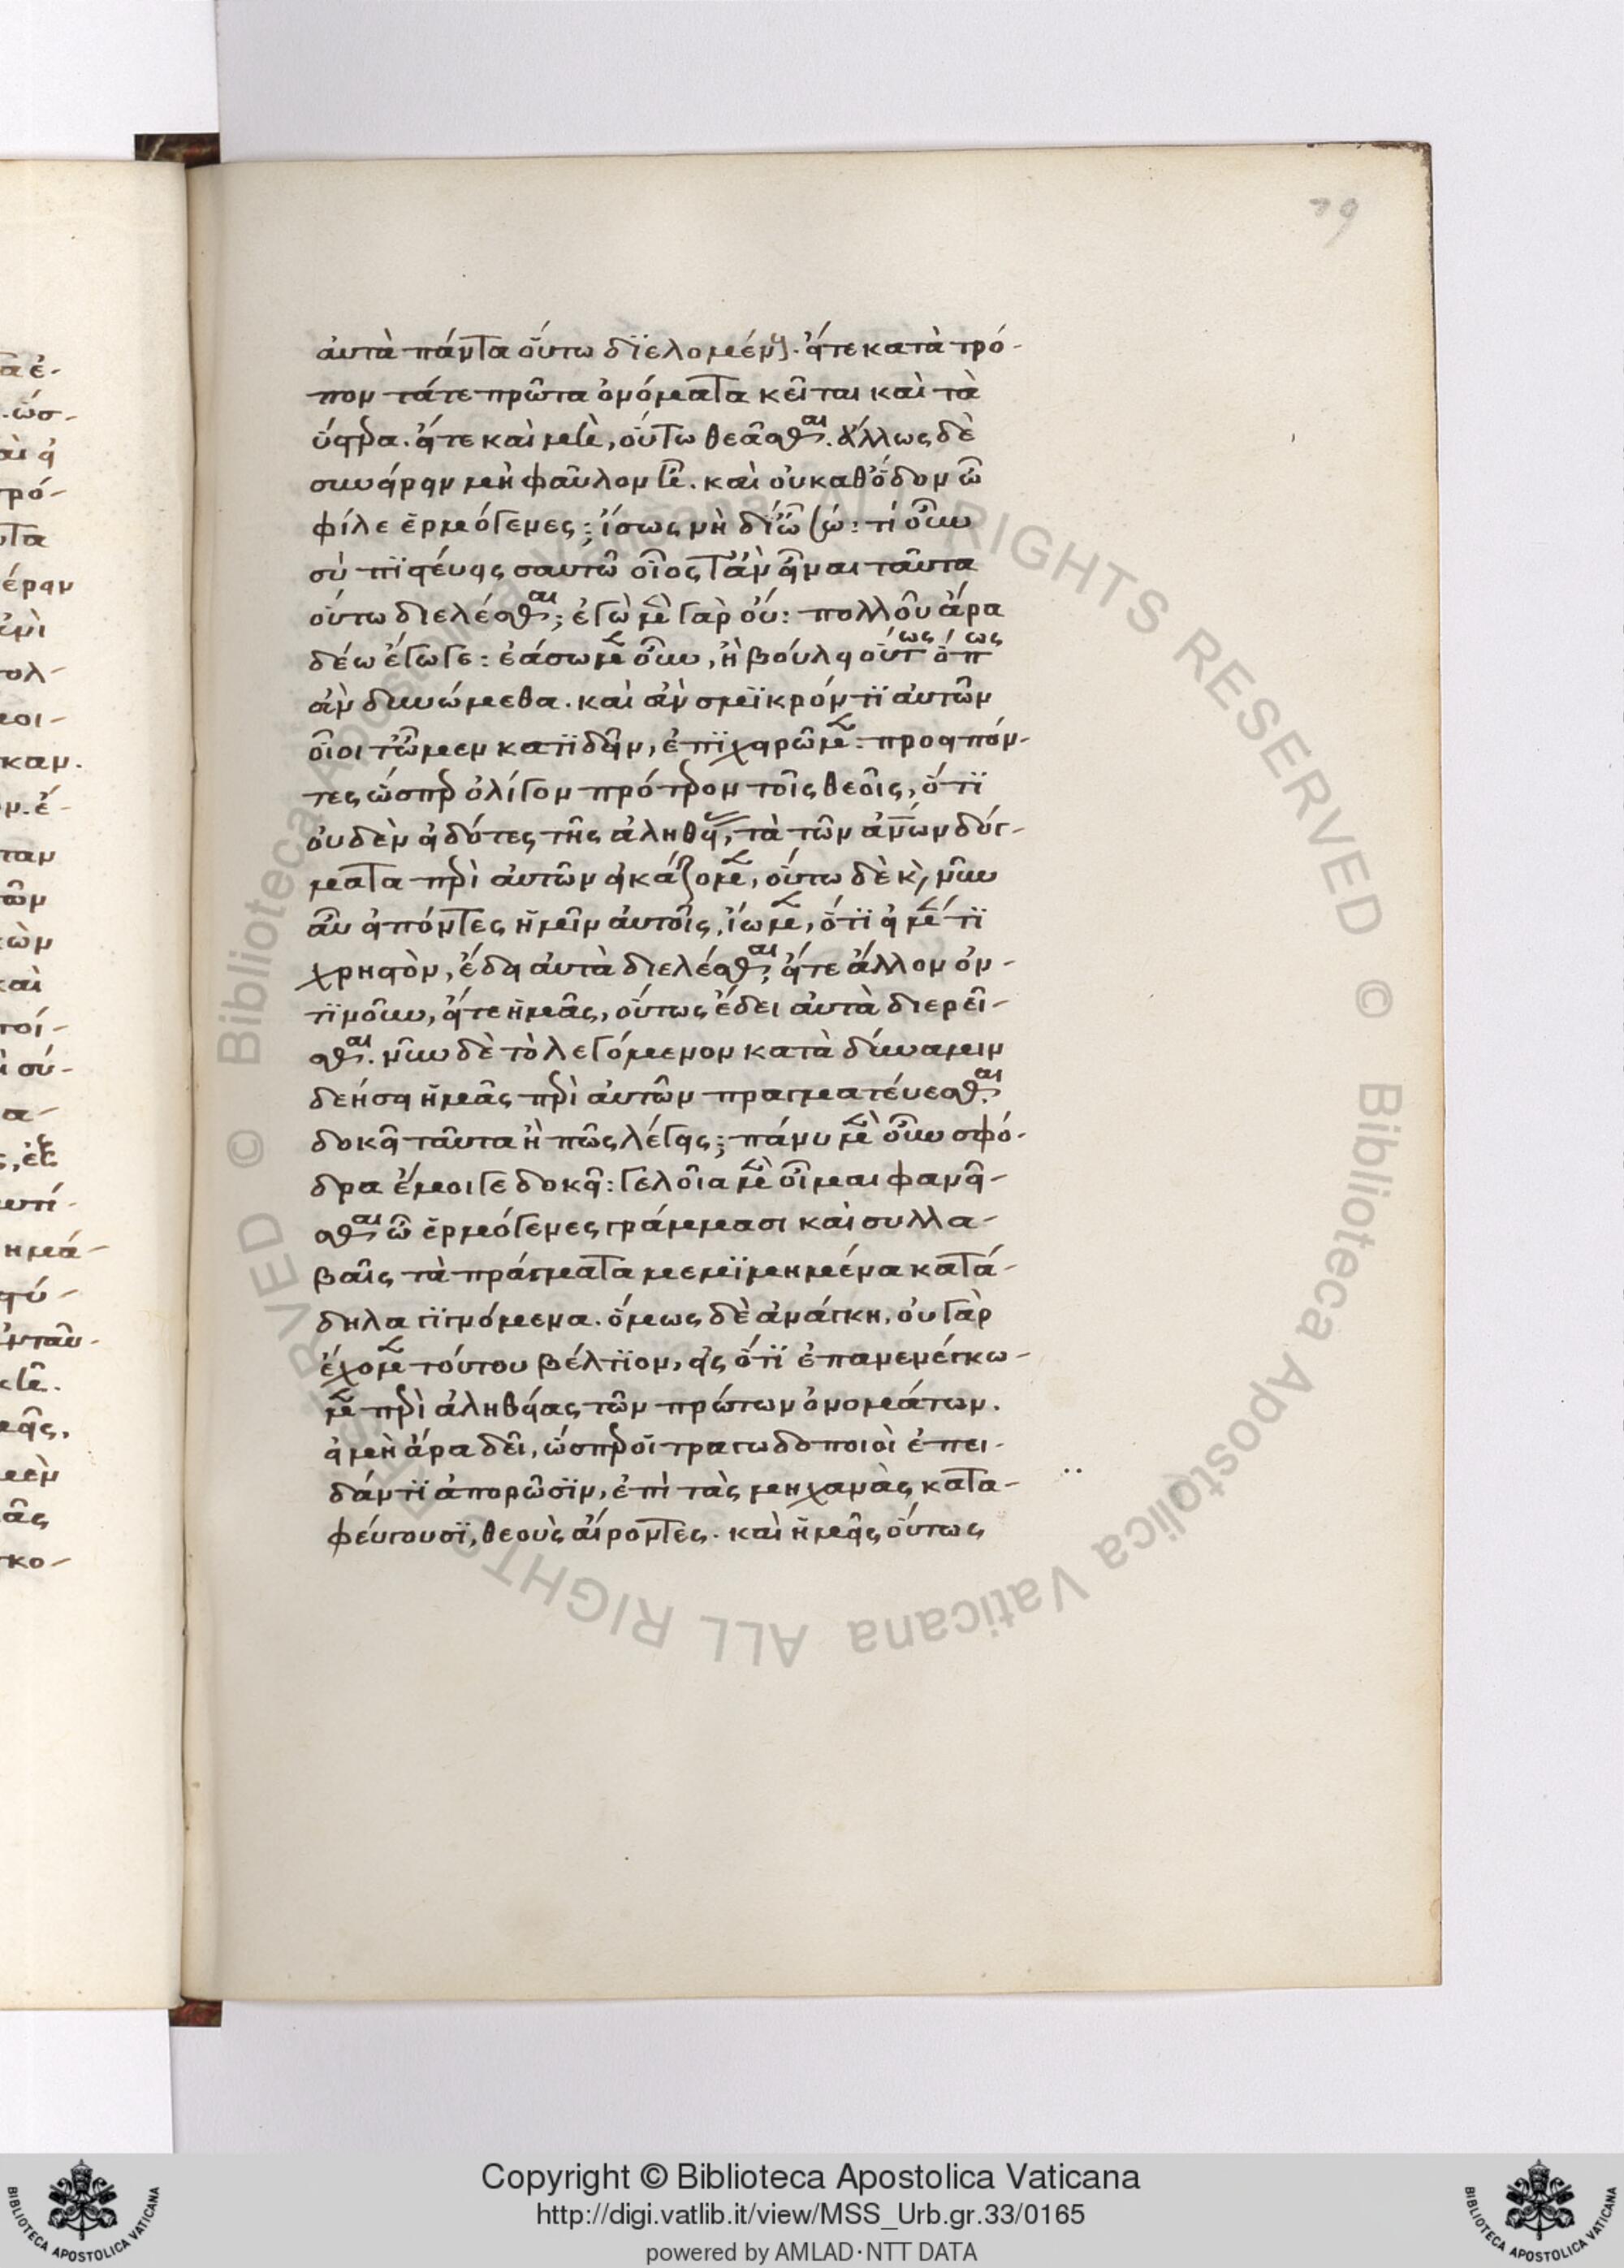 79
αὐτὰ πάντα οὕτω διελομένους. εἴτε κατὰ τρό-
πον τά τε πρῶτα ὀνόματα κεῖται καὶ τὰ
ὕστερα. εἴτε καὶ μὴ, οὕτω θεᾶσθαι. ἄλλως δὲ
συνείρειν μὴ φαῦλον ἦ. καὶ οὐ καθ᾽ ὁδὸν ὦ
φίλε ἑρμόγενες; ἴσως νὴ δί᾽ ὦ σώ: τί οὖν
σὺ πιστεύεις σαυτῶ οἷός τ᾽ ἂν εἶναι ταῦτα
οὕτω διελέσθαι; ἐγὼ μὲν γὰρ οὔ: πολλοῦ ἄρα
δέω ἔγωγε: ἐάσωμεν οὖν, ἢ βούλει οὕτως ὅπως
ἂν δυνώμεθα. καὶ ἂν σμικρόν τι αὐτῶν
οἷοί τ᾽ ὦμεν κατιδεῖν, ἐπιχειρῶμεν: προειπόν-
τες ὥσπερ ὀλίγον πρότερον τοῖς θεοῖς, ὅτι
οὐδὲν εἰδότες τῆς ἀληθείας, τὰ τῶν ἀνων δόγ-
ματα περὶ αὐτῶν εἰκάζομεν, οὕτω δὲ κ, νῦν
αὖ εἰπόντες ἡμῖν αὐτοῖς, ἴωμεν, ὅτι εἰ μέν τι
χρηστὸν, ἔδει αὐτὰ διελέσθαι, εἴτε ἄλλον ὁν-
τινοῦν, εἴτε ἡμᾶς, οὕτως ἔδει αὐτὰ διερεῖ-
σθαι. νῦν δὲ τὸ λεγόμενον κατὰ δύναμιν
δεήσει ἡμᾶς περὶ αὐτῶν πραγματεύεσθαι.
δοκεῖ ταῦτα ἢ πῶς λέγεις; πάνυ μὲν οὖν σφό-
δρα ἔμοιγε δοκεῖ: γελοῖα μὲν οἶμαι φανεῖ-
σθαι ὦ ἑρμόγενες γράμμασι καὶ συλλα-
βαῖς τὰ πράγματα μεμιμημένα κατά-
δηλα γιγνόμενα. ὅμως δὲ ἀνάγκη, οὐ γὰρ
ἔχομεν τούτου βέλτιον, εἰς ὅτι ἐπανενέγκω-
μεν περὶ ἀληθείας τῶν πρώτων ὀνομάτων.
εἰ μὴ ἄρα δεῖ, ὥσπερ οἱ τραγωδοποιοὶ ἐπει-
δάν τι ἀπορῶσιν, ἐπὶ τὰς μηχανὰς κατα-
φεύγουσι, θεοὺς αἴροντες. καὶ ἡμεῖς οὕτως
© Biblioteca Apostolica Vaticana ALL RIGHTS RESERVED © Biblioteca Apostolica Vaticana ALL RIGHTS RESERVED
Copyright © Biblioteca Apostolica Vaticana
http://digi.vatlib.it/view/MSS_Urb.gr.33/0165
powered by AMLAD·NTT DATA
BIBLIOTECA APOSTOLICA VATICANA
BIBLIOTECA APOSTOLICA VATICANA